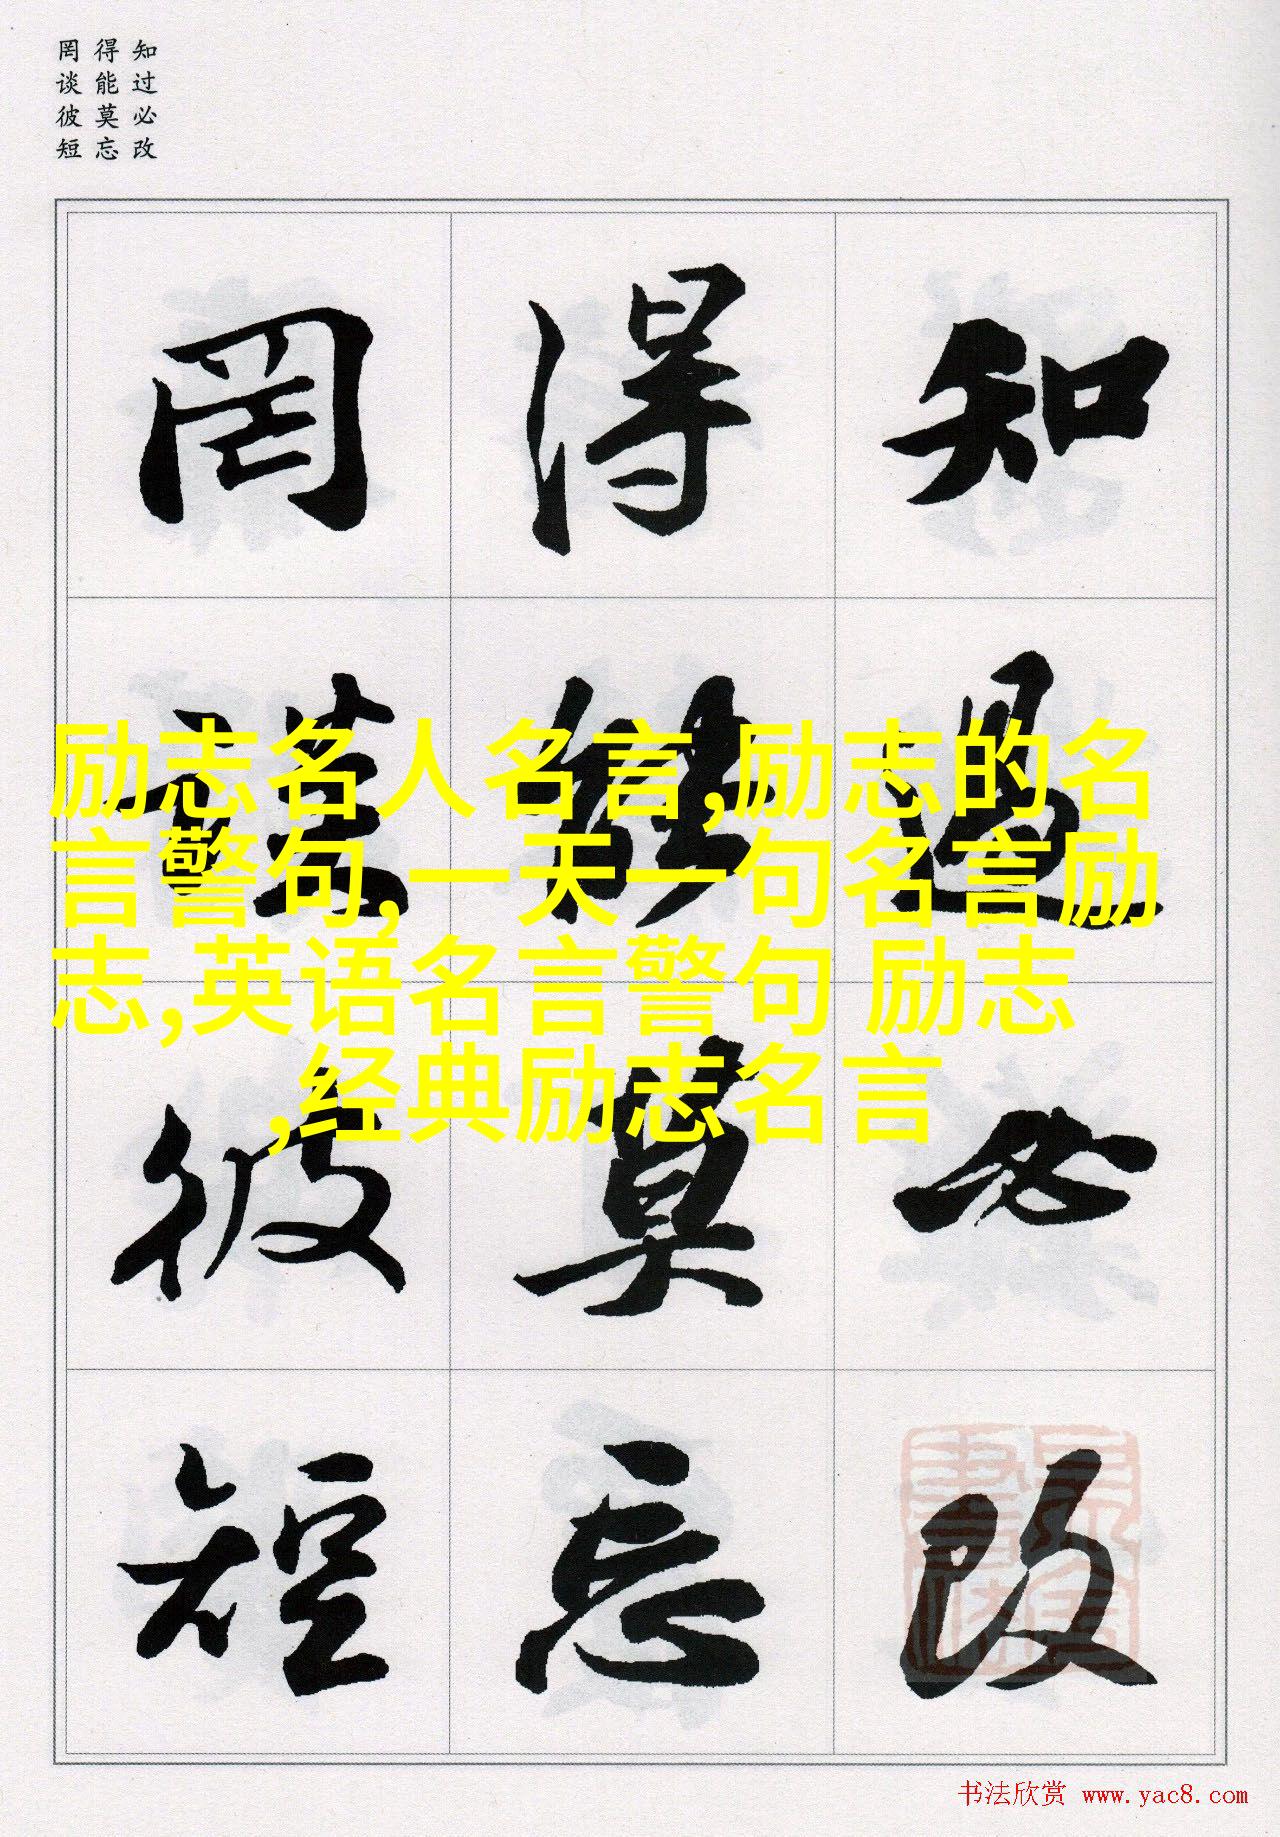 知过必改
得能莫忘
罔谈彼短
知過必改
得能莫忘
罔談彼短
励志名人名言,励志的名
言警句,一天一句名言励
志,英语名言警句 励志
,经典励志名言
书法欣赏 www.yac8.com